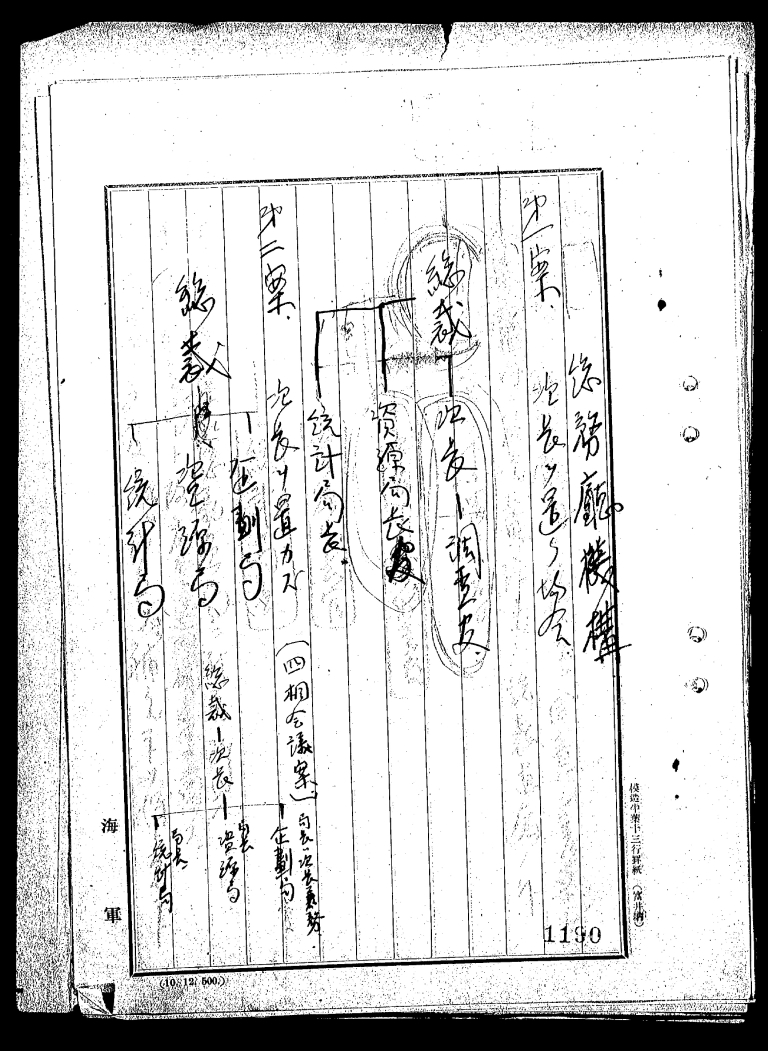 総務廳機構
第一案、
次長ヲ置ク場合
総裁
次長ー調査官
資源局長
統計局長
第二案、
次長ヲ置カズ
（四相会議案）
総裁
企劃局
資源局
統計局
総裁ー次長ー
企劃局
局長ハ次長兼務
資源局
局長
統計局
局長
海軍
模造半葉十三行罫紙
1190
(10. 12. 500.)